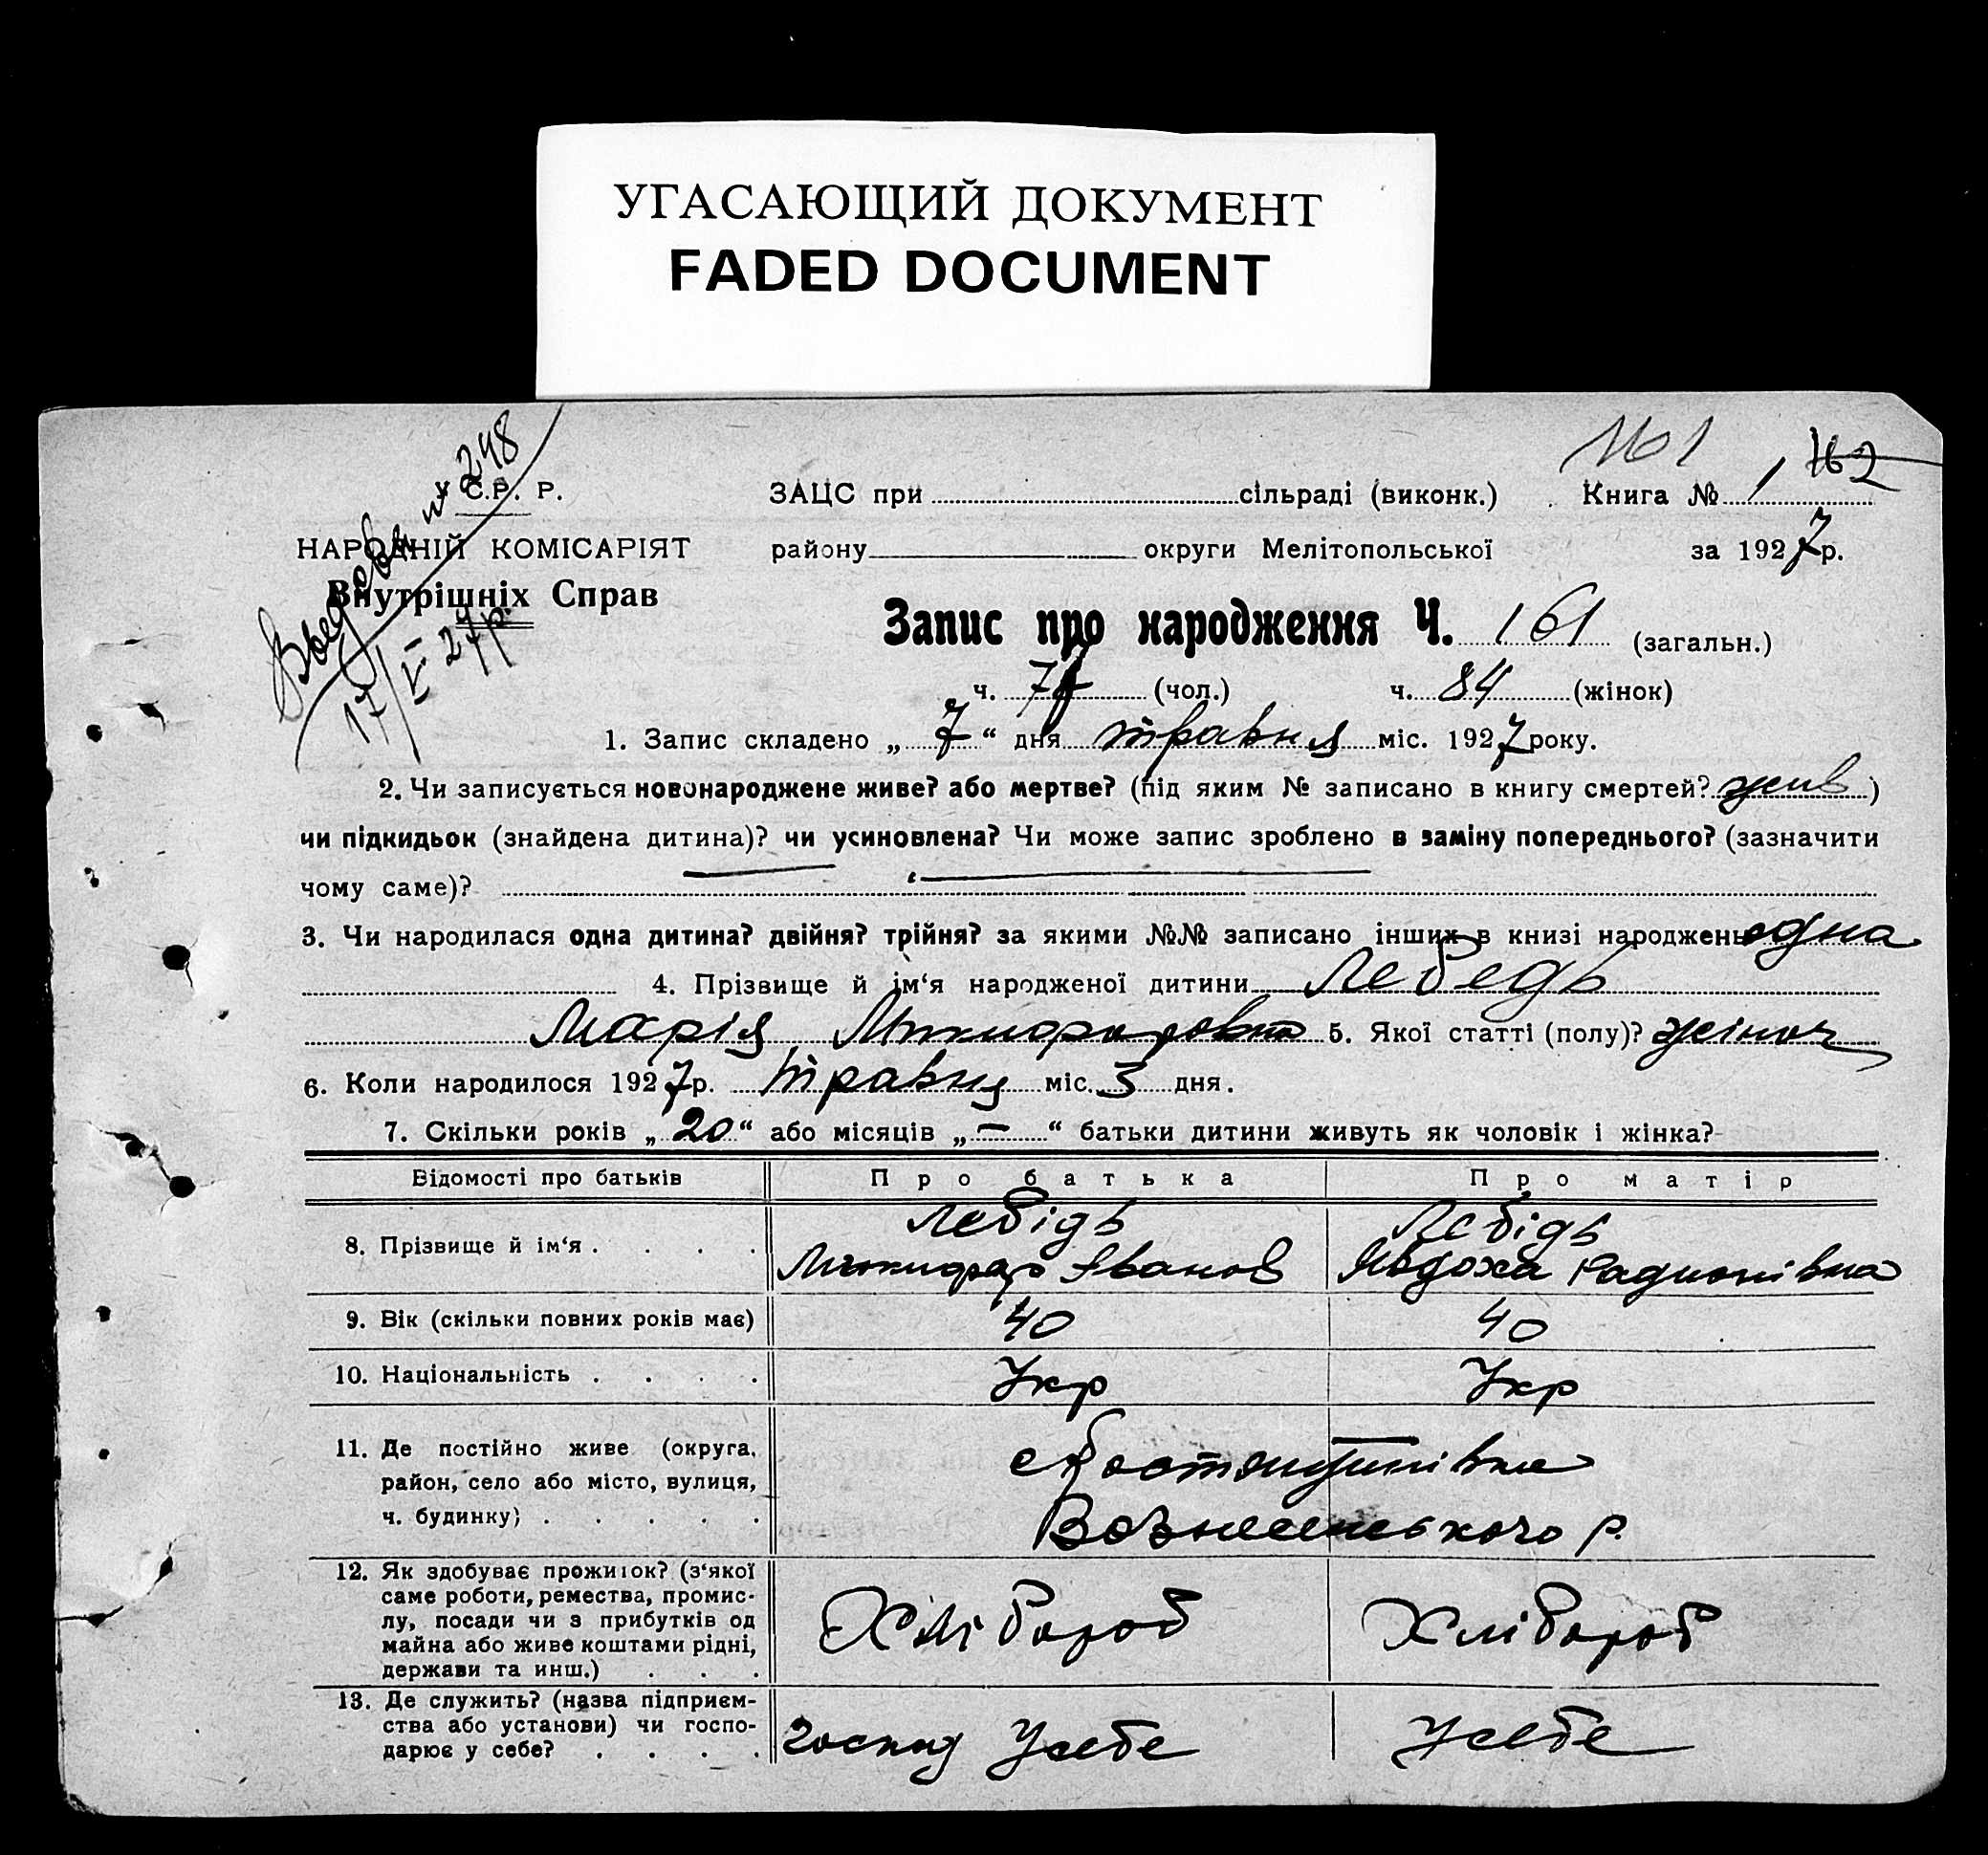 УГАСАЮЩИЙ ДОКУМЕНТ
FADED DOCUMENT
161
№ 248
17/V 27р.
У С.Р. Р.
НАРОДНІЙ КОМІСАРІЯТ
Внутрішніх Справ
ЗАЦС при сільраді (виконк.) Книга № 1 162
району округи Мелітопольської за 1927 р.
Запис про народження Ч. 161 (загальн.)
ч. 77 (чол.) ч. 84 (жінок)
1. Запис складено „ 7 “ дня травня міс. 1927 року.
2. Чи записується новонароджене живе? або мертве? (під яким № записано в книгу смертей? жив )
чи підкидьок (знайдена дитина)? чи усиновлена? Чи може запис зроблено в заміну попереднього? (зазначити
чому саме)?
3. Чи народилася одна дитина? двійня? трійня? за якими №№ записано інших в книзі народжень одна
4. Прізвище й ім‘я народженої дитини Лебедь
Марія 5. Якої статті (полу)? жіноч
6. Коли народилося 1927 р. травня міс. 3 дня.
7. Скільки років „ 20 “ або місяців „ — “ батьки дитини живуть як чоловік і жінка?
Відомості про батьків Про батька Про матір
8. Прізвище й ім‘я . . . . Лебідь Лебідь
Микифор Іванов Явдоха Радионівна
9. Вік (скільки повних років має) 40 40
10. Національність . . . . Укр Укр
11. Де постійно живе (округа,
район, село або місто, вулиця,
ч. будинку) . . . . .
Вознесенського р.
12. Як здобуває прожиток? (з‘якої
саме роботи, ремества, промис-
лу, посади чи з прибутків од
майна або живе коштами рідні,
держави та инш.) . . .
Хлібороб Хлібороб
13. Де служить? (назва підприєм-
ства або установи) чи госпо-
дарює у себе? . . . .
Усебе Усебе